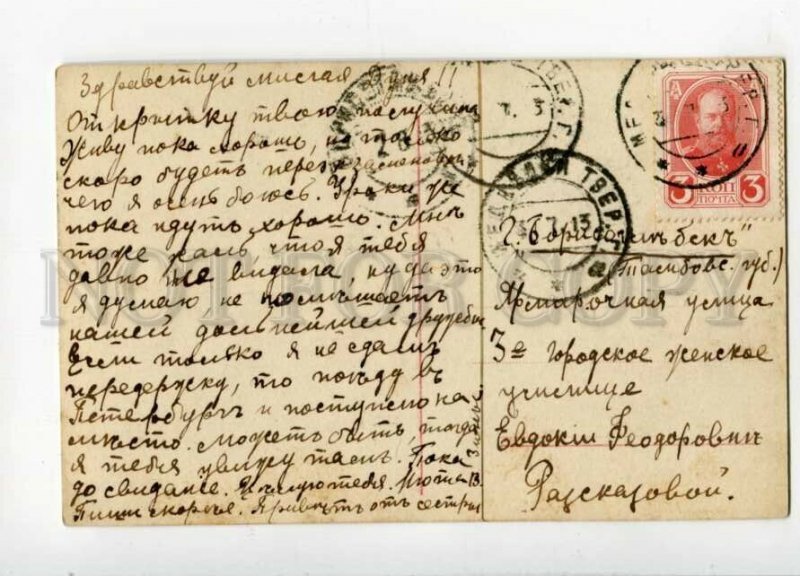 Здравствуй милая Дуня!!
Открытку твою получила
Живу пока хорошо, но только
скоро будетъ
чего я очень боюсь. Уроки же
пока идутъ хорошо. Мнѣ
тоже жаль, что я тебя
давно не видала, ну да это
я думаю не помѣшаетъ
нашей дальнѣйшей дружбѣ
Если только я не сдамъ
передержку, то поѣду въ
Петербургъ и поступлю на
мѣсто. Можетъ быть, тогда
я тебя увижу тамъ. Пока
до свиданье. Цѣлую тебя.
Пиши скорѣе. Привѣтъ отъ сестры
г. Борисоглѣбскъ"
(Тамбовс. губ.)
Ярмарочная улица
3е городское женское
училище
Евдокіи Феодоровнѣ
Разсказовой.
3 КОП 3
ПОЧТА
NOT FOR COPY